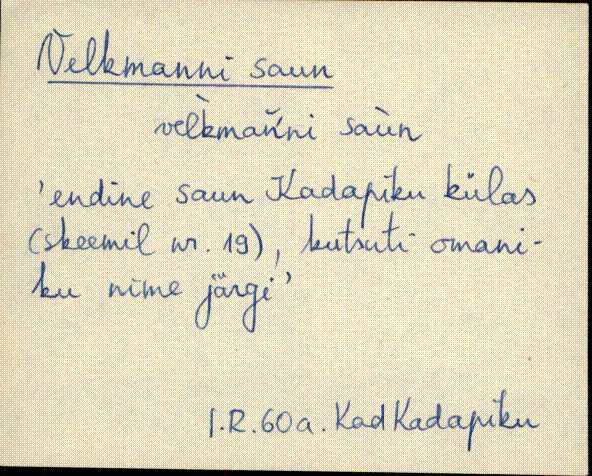 Velkmanni saun
vel̀kman̆ni saùn
'endine saun Kadapiku külas
(skeemil nr. 19), kutsuti omani-
ku nime järgi'
I.R. 60a. Kad Kadapiku